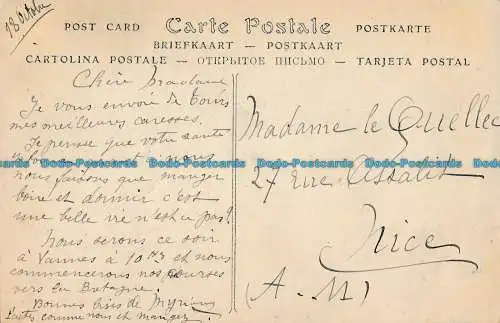 18 Octobre
POST CARD Carte Postale POSTKARTE
BRIEFKAART — POSTKAART
CARTOLINA POSTALE — ОТКРЫТОЕ ПИСЬМО — TARJETA POSTAL
Chère Madame
Je vous envoie de Tours
mes meilleures caresses.
Je pense que votre santé
nous
nous faisons que manger
boire et dormir c'est
une belle vie n'est ce pas?
Nous serons ce soir
à Vannes à 10h et nous
commencerons nos courses
vers la Bretagne.
Bonnes bises de
comme nous et mangez
Madame le Quellec
27 rue Assalit
Nice
(A-M)
Postcards